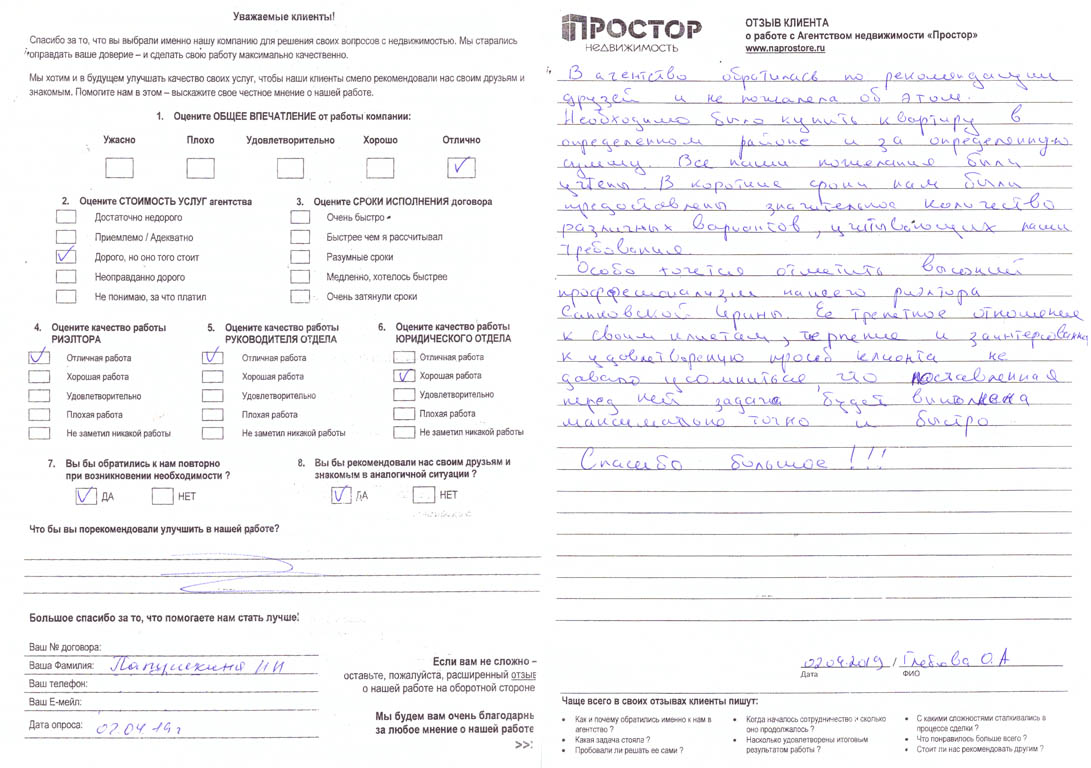 Уважаемые клиенты!
Спасибо за то, что вы выбрали именно нашу компанию для решения своих вопросов с недвижимостью. Мы старались
оправдать ваше доверие – и сделать свою работу максимально качественно.
Мы хотим и в будущем улучшать качество своих услуг, чтобы наши клиенты смело рекомендовали нас своим друзьям и
знакомым. Помогите нам в этом – выскажите свое честное мнение о нашей работе.
1. Оцените ОБЩЕЕ ВПЕЧАТЛЕНИЕ от работы компании:
Ужасно Плохо Удовлетворительно Хорошо Отлично
2. Оцените СТОИМОСТЬ УСЛУГ агентства
Достаточно недорого
Приемлемо / Адекватно
Дорого, но оно того стоит
Неоправданно дорого
Не понимаю, за что платил
3. Оцените СРОКИ ИСПОЛНЕНИЯ договора
Очень быстро
Быстрее чем я рассчитывал
Разумные сроки
Медленно, хотелось быстрее
Очень затянули сроки
4. Оцените качество работы
РИЭЛТОРА
Отличная работа
Хорошая работа
Удовлетворительно
Плохая работа
Не заметил никакой работы
5. Оцените качество работы
РУКОВОДИТЕЛЯ ОТДЕЛА
Отличная работа
Хорошая работа
Удовлетворительно
Плохая работа
Не заметил никакой работы
6. Оцените качество работы
ЮРИДИЧЕСКОГО ОТДЕЛА
Отличная работа
Хорошая работа
Удовлетворительно
Плохая работа
Не заметил никакой работы
7. Вы бы обратились к нам повторно
при возникновении необходимости ?
ДА НЕТ
8. Вы бы рекомендовали нас своим друзьям и
знакомым в аналогичной ситуации ?
ДА НЕТ
Что бы вы порекомендовали улучшить в нашей работе?
Большое спасибо за то, что помогаете нам стать лучше!
Ваш № договора:
Ваша Фамилия:
Ваш телефон:
Ваш Е-мейл:
Дата опроса: 02 04 19 г
Если вам не сложно –
оставьте, пожалуйста, расширенный отзыв
о нашей работе на оборотной стороне
Мы будем вам очень благодарны
за любое мнение о нашей работе
>>:
ПРОСТОР
НЕДВИЖИМОСТЬ
ОТЗЫВ КЛИЕНТА
о работе с Агентством недвижимости «Простор»
www.naprostore.ru
В агентство обратилась по рекомендации
друзей и не пожалела об этом.
Необходимо было купить квартиру в
определенном районе и за определенную
сумму. Все наши пожелания были
учтены. В короткие сроки нам были
предоставлены значительное количество
различных вариантов, учитывающих наши
требования.
Особо хочется отметить высокий
профессионализм нашего риэлтора
Сапковской Ирины. Ее трепетное отношение
к своим клиетам, терпение и заинтересованно
к удовлетвореную просьб клиента не
давало усомниться, что поставленная
перед ней задача будет выполнена
максимально точно и быстро
Спасибо большое!!!
02.04.2019 / Глебова О.А
Дата ФИО
Чаще всего в своих отзывах клиенты пишут:
• Как и почему обратились именно к нам в
агентство ?
• Какая задача стояла ?
• Пробовали ли решать ее сами ?
• Когда началось сотрудничество и сколько
оно продолжалось ?
• Насколько удовлетворены итоговым
результатом работы ?
• С какими сложностями сталкивались в
процессе сделки ?
• Что понравилось больше всего ?
• Стоит ли нас рекомендовать другим ?